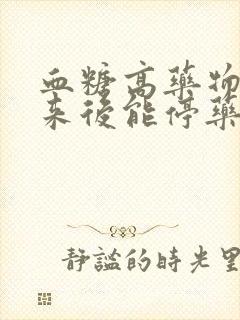 血糖高藥物
來後能停藥
靜謐的時光里